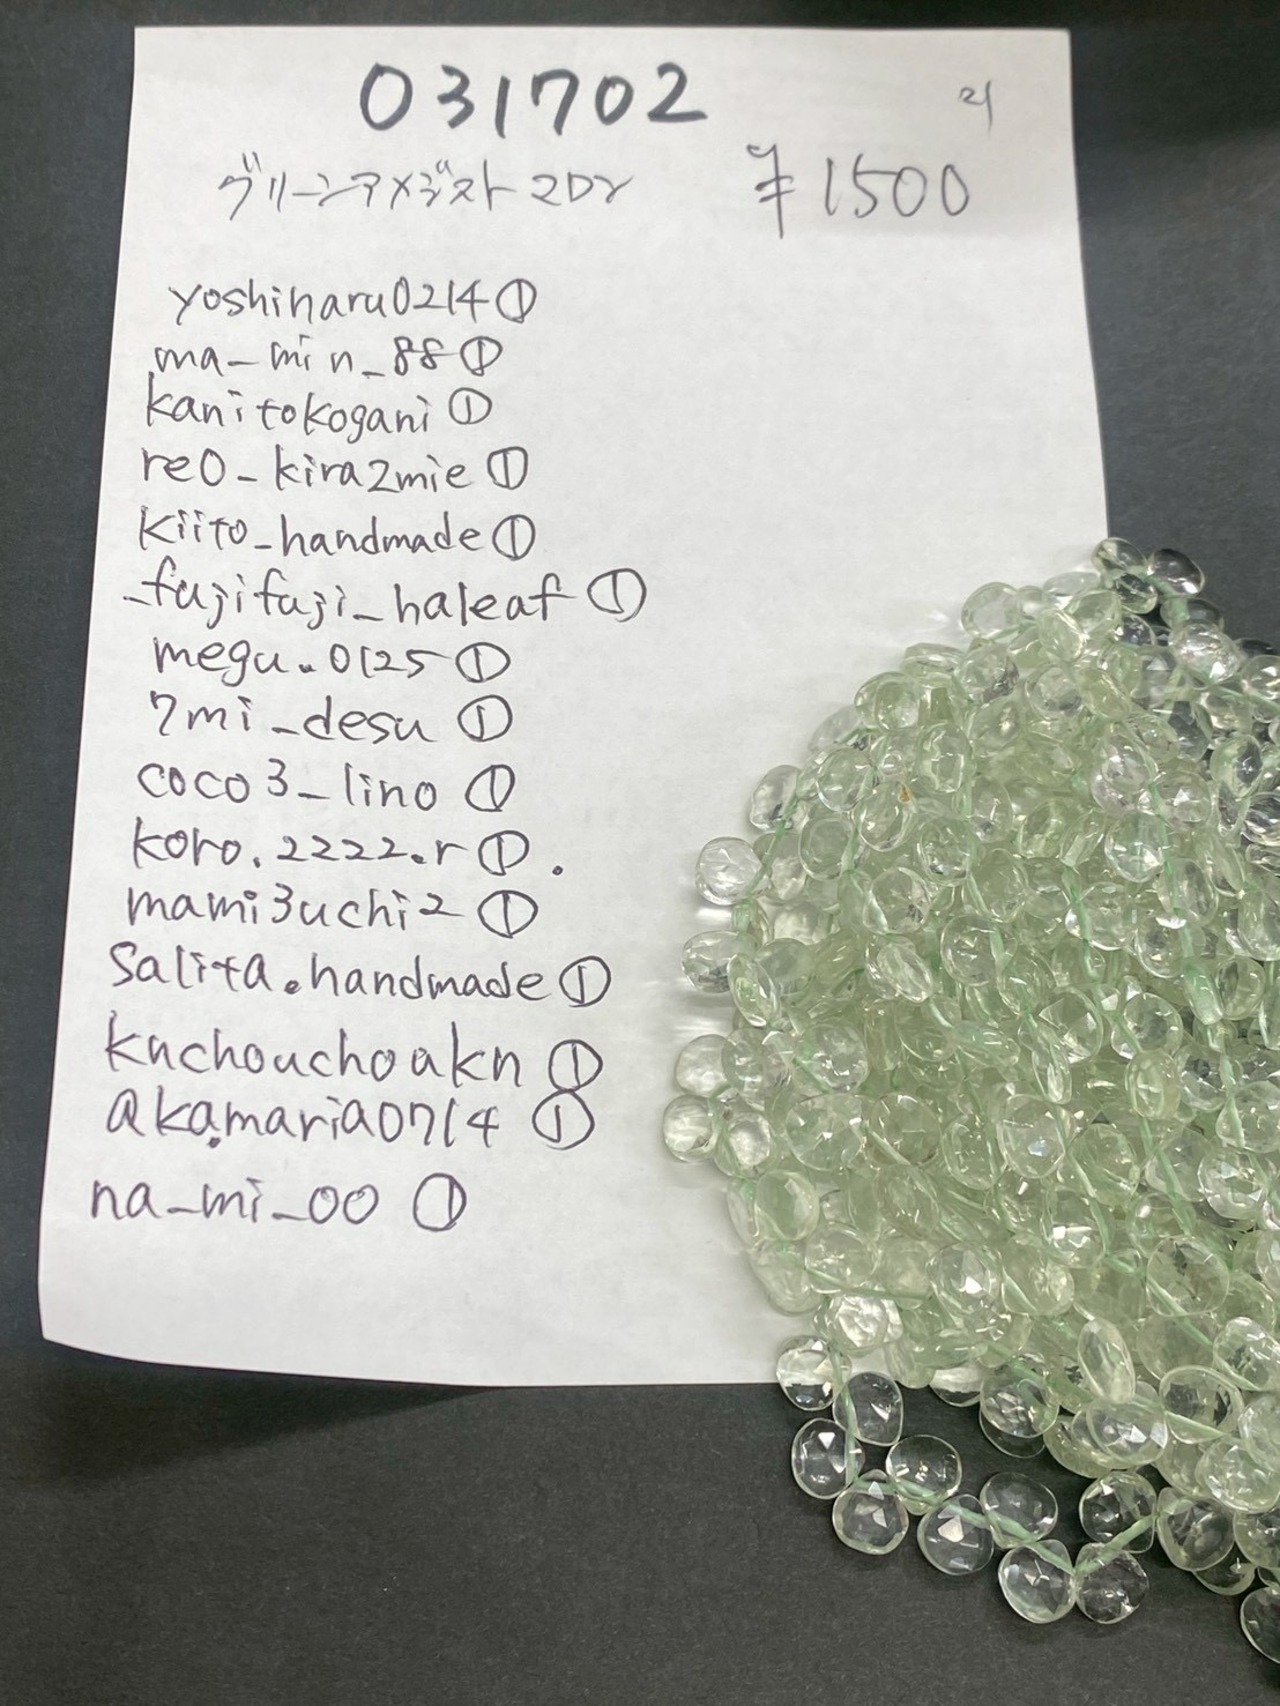 031702
21
グリーンアメジスト2Dr ¥1500
yoshiharu0214①
ma_min_88①
kanitokogani①
re0_kira2mie①
kiito_handmade①
_fujifuji_haleaf①
megu.0125①
7mi_desu①
coco3_lino①
koro.2222.r①.
mami3uchi2①
salita.handmade①
knchouchoakn①
akamaria0714①
na_mi_00①